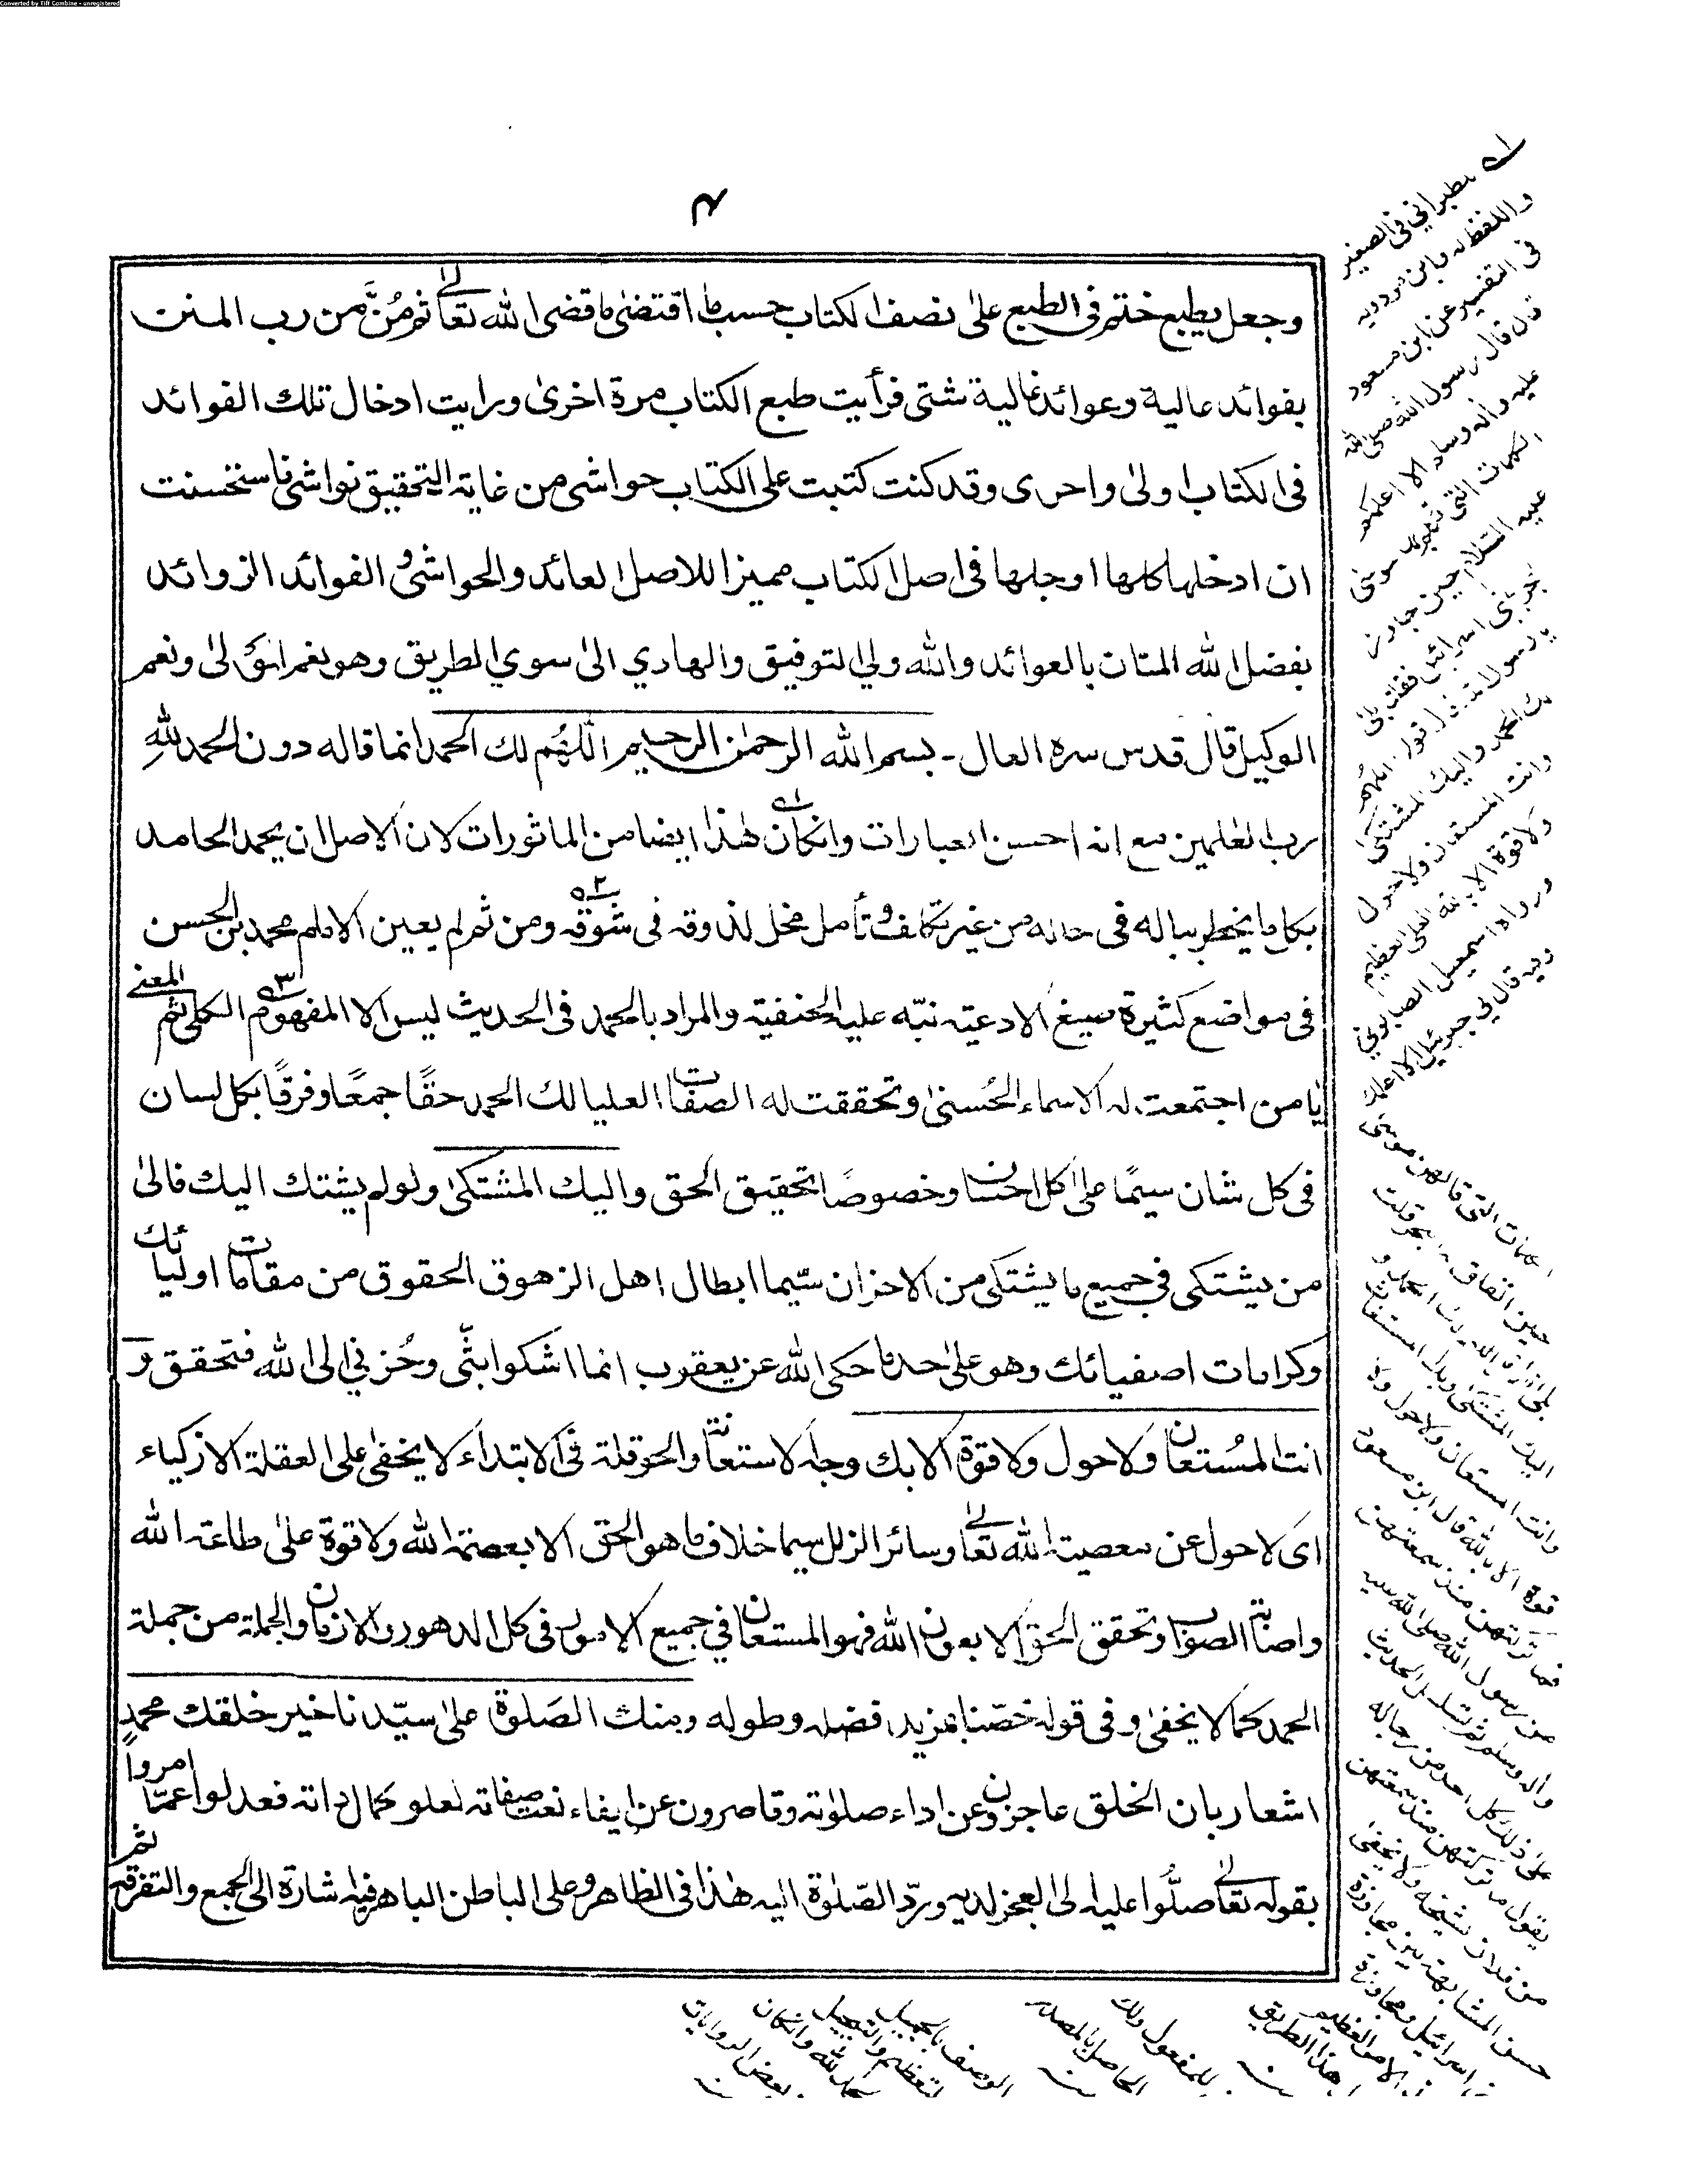 Converted by Tiff Combine - unregistered
٤
وجعل يطبع ختم فى الطبع على نصف الكتاب حسب ما اقتضى ما قضى الله تعالى ثم مُنَّ من رب المنن
بفوائد عالية وعوائد غالية شتى فرأيت طبع الكتاب مرة اخرى ورايت ادخال تلك الفوائد
فى الكتاب اولى واحرى وقد كنت كتبت على الكتاب حواشى من غاية التحقيق نواشى فاستحسنت
ان ادخلها كلها او جلها فى اصل الكتاب مميزا للاصل العائد والحواشى والفوائد الزوائد
بفضل الله المنان بالعوائد والله ولي التوفيق والهادي الى سوي الطريق وهو نعم المولى ونعم
الوكيل قال قدس سره العال ـ بسم الله الرحمن الرحيم اللهم لك الحمد انما قاله دون الحمد للهِ
رب العلمين مع انه احسن العبارات وان كان هذا ايضا من الماثورات لان الاصل ان يحمد الحامد
بكل ما يخطر بباله فى حاله من غير تكلف وتأمل مخل لذوقه فى شوقه ومن ثم لم يعين الامام محمد بن الحسن
فى مواضع كثيرة صيغ الادعية نبّه عليه الحنفية والمراد بالحمد فى الحديث ليس الا المفهوم الكلى ثم المعنى
يا من اجتمعت له الاسماء الحُسنى وتحققت له الصفات العليا لك الحمد حقًا جمعًا وفرقًا بكل لسان
فى كل شان سيمّا على كل احسان وخصوصًا تحقيق الحق واليك المشتكى ولو لم يشتك اليك فالى
من يشتكى في جميع ما يشتكى من الاحزان سيّما ابطال اهل الزهوق الحقوق من مقامات اوليائك
وكرامات اصفيائك وهو على حد ما حكى الله عن يعقوب انما اشكوا بثّى وحُزني الى الله فتحقق و
انت المسُتعان ولا حول ولا قوة الا بك وجه الاستعانة والحوقلة فى الابتداء لا يخفى على العقلة الازكياء
اى لا حول عن معصيت الله تعالى وسائر الزلل سيما خلاف ما هو الحق الا بعصمة الله ولا قوة على طاعة الله
واصابة الصواب وتحقق الحق الا بعون الله فهو المستعان في جميع الامور فى كل الدهور والازمان والجملة من جملة
الحمد كما لا يخفى وفى قوله خصّنا بمزيد فضله وطوله ومنك الصلوة على سيّدنا خير خلقك محمدٍ
اشعار بان الخلق عاجزون عن اداء صلوته وقاصرون عن ايفاء نعت صفاته لعلو كمال ذاته فعدلوا عمّا امروا
بقوله تعالى صلُّوا عليه الى العجز لديه وردّ الصّلوة اليه هذا فى الظاهر وعلى الباطن الباهر فيه اشارة الى الجمع والتفرقة ثم
طبراني فى الصغير
واللفظ له وابن مردويه
فى التفسير عن ابن مسعود
قال قال رسول الله صلى الله
عليه واله وسلم الا اعلمكم
الكلمات التى تكلم موسى
عليه السلام حين جاوز
البحر ببنى اسرائيل فقلنا بلى
يا رسول الله قال قولوا اللهم
لك الحمد واليك المشتكى
وانت المستعان ولا حول
ولا قوة الا بالله العلى العظيم
ورواه اسمعيل الصابونى
وفيه قال لي جبرئيل الا اعلمك
الكلمات التى قالهن موسى
حين انفلق له البحر قلت
بلى قال قل اللهم لك الحمد و
اليك المشتكى وبك المستغاث
وانت المستعان ولا حول ولا
قوة الا بالله قال ابن مسعود
فما تركتهن منذ سمعتهن
من رسول الله صلى الله عليه
واله وسلم ثم تسلسل الحديث
على ذلك كل احد من رجاله
يقول ما تركتهن منذ سمعتهن
من فلان شيخه ولا يخفى
حسن المشابهة بين مجاوزة
بنى اسرائيل ومجاوزة
الامر العظيم
هذا الطريق
للمفعول ولك
الحاصل بالمصدر
الوصف بالجميل
لتعظيم والتبجيل
حمد لله وان كان
بعض الروايات